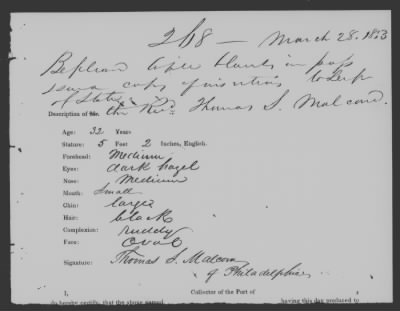 268 — March 28. 1853
Be pleased to fill blanks in pass
copy of to Dept
of State. the Revd Thomas S. Malcom.
Description of Mr.
Age: 32 Years
Stature: 5 Feet 2 Inches, English.
Forehead: Medium
Eyes: dark hazel
Nose: Medium
Mouth: Small
Chin: large
Hair: black
Complexion: ruddy
Face: Oval
Signature: Thomas S. Malcom
of Philadelphia
I, Collector of the Port of
do hereby certify, that the above named having this day produced to